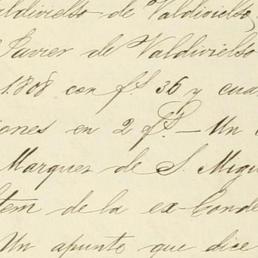 Valdivielso de Valdivielso,
Xavier de Valdivielso
1808 con fs. 36 y cua
iones en 2 fs. — Un
Marques de S. Migu
Item de la ex-Conde
Un apunte que dice